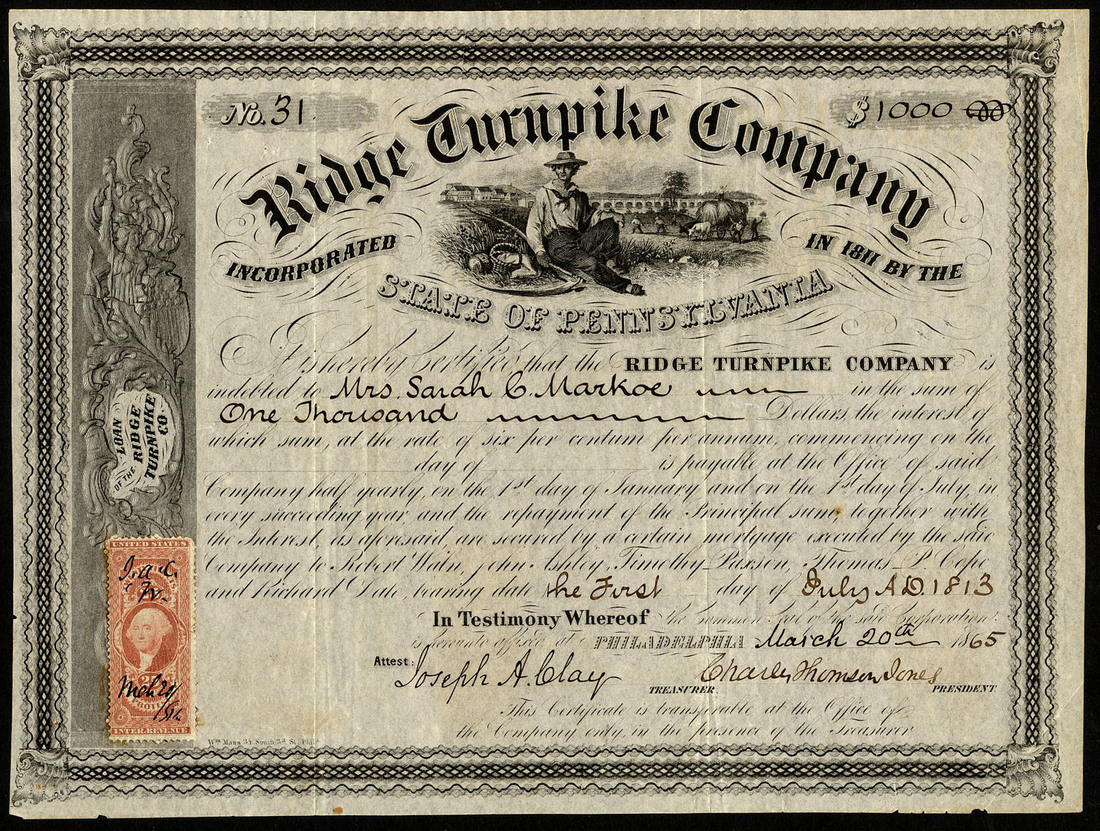 No. 31
$1000 00
Ridge Turnpike Company
INCORPORATED IN 1811 BY THE
STATE OF PENNSYLVANIA
It is hereby Certified that the RIDGE TURNPIKE COMPANY is
indebted to Mrs. Sarah C. Markoe in the sum of
One Thousand Dollars the interest of
which sum, at the rate of six per centum per annum, commencing on the
day of is payable at the Office of said
Company half yearly, on the 1st day of January and on the 1st day of July, in
every succeeding year, and the repayment of the Principal sum, together with
the Interest, as aforesaid, are secured by a certain mortgage executed by the said
Company to Robert Waln, John Ashley, Timothy Paxson, Thomas P. Cope
and Richard Dale, bearing date the First day of July A.D. 1813
In Testimony Whereof the Common Seal of the said Corporation
is hereunto affixed at PHILADELPHIA March 20th 1865
Attest: Joseph A. Clay TREASURER. Charles Thomson Jones PRESIDENT
This Certificate is transferable at the Office of
the Company only, in the presence of the Treasurer
Wm Mann 34 South 3d St. Phila
LOAN
OF THE RIDGE
TURNPIKE
CO.
UNITED STATES
INTER. REVENUE